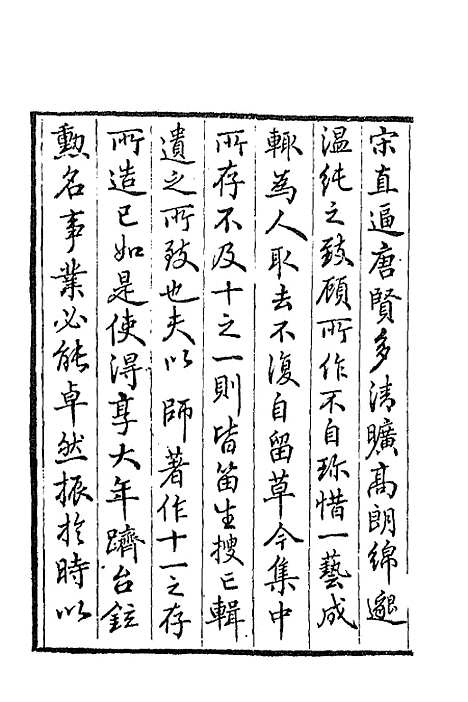 宋直逼唐賢多清曠高朗綿邈
溫純之致顧所作不自珎惜一藝成
輒為人取去不復自留草今集中
所存不及十之一則皆笛生搜亡輯
遺之所致也夫以 師著作十一之存
所造已如是使得享大年躋台鉉
勲名事業必能卓然振於時以